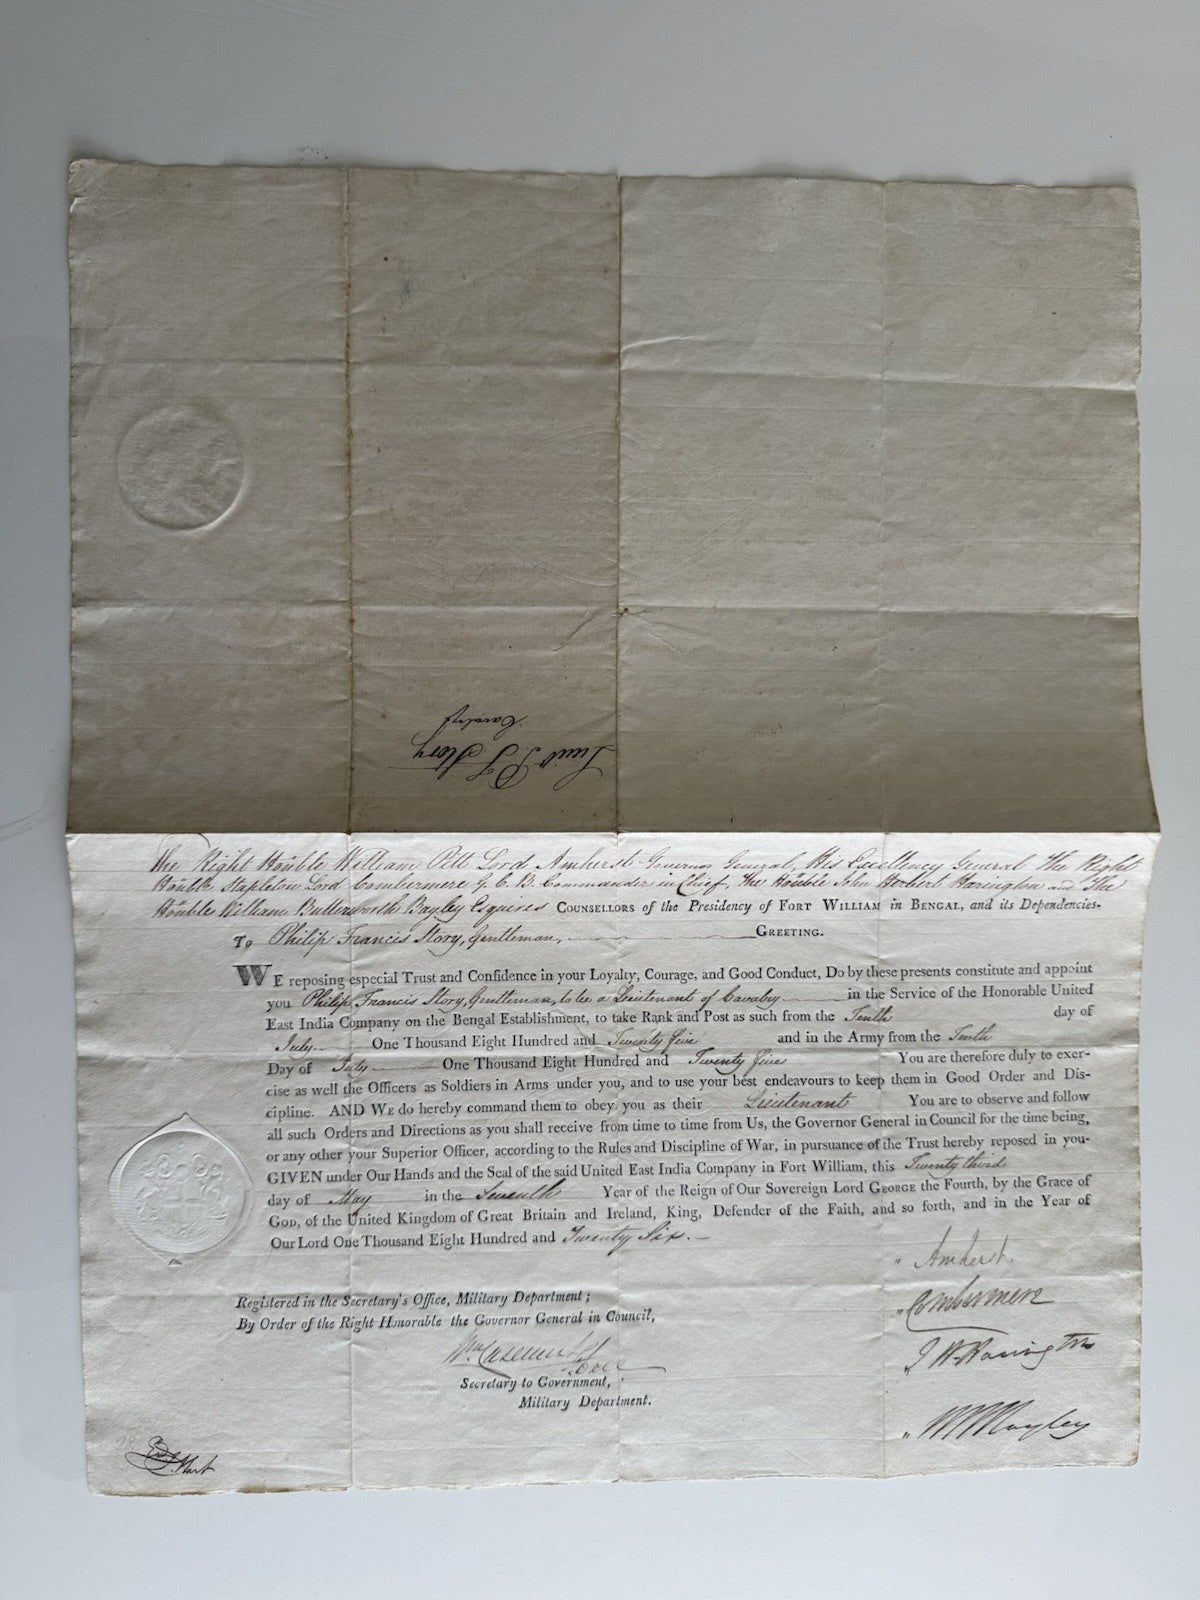 Lieut P. F. Story
Cavalry
The Right Honble William Pitt Lord Amherst Governor General, His Excellency General The Right
Honble Stapleton Lord Combermere G. C. B. Commander in Chief, The Honble John Herbert Harington and The
Honble William Butterworth Bayley Esquires COUNSELLORS of the Presidency of FORT WILLIAM in BENGAL, and its Dependencies.
To Philip Francis Story, Gentleman, GREETING.
WE reposing especial Trust and Confidence in your Loyalty, Courage, and Good Conduct, Do by these presents constitute and appoint
you Philip Francis Story, Gentleman, to be a Lieutenant of Cavalry in the Service of the Honorable United
East India Company on the Bengal Establishment, to take Rank and Post as such from the Tenth day of
July One Thousand Eight Hundred and Twenty five and in the Army from the Tenth
Day of July One Thousand Eight Hundred and Twenty five You are therefore duly to exer-
cise as well the Officers as Soldiers in Arms under you, and to use your best endeavours to keep them in Good Order and Dis-
cipline. AND WE do hereby command them to obey you as their Lieutenant You are to observe and follow
all such Orders and Directions as you shall receive from time to time from Us, the Governor General in Council for the time being,
or any other your Superior Officer, according to the Rules and Discipline of War, in pursuance of the Trust hereby reposed in you-
GIVEN under Our Hands and the Seal of the said United East India Company in Fort William, this Twenty third
day of May in the Seventh Year of the Reign of Our Sovereign Lord GEORGE the Fourth, by the Grace of
GOD, of the United Kingdom of Great Britain and Ireland, King, Defender of the Faith, and so forth, and in the Year of
Our Lord One Thousand Eight Hundred and Twenty Six.
Amherst
Combermere
Registered in the Secretary's Office, Military Department;
By Order of the Right Honorable the Governor General in Council,
J. H. Harington
Wm Casement
Secretary to Government,
Military Department.
W B Bayley